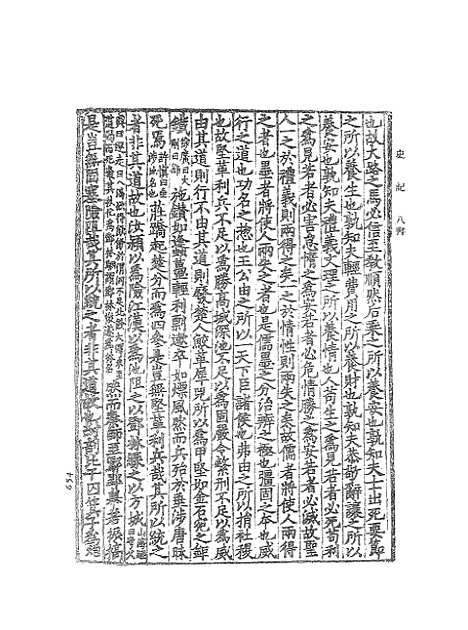 史記 八書
也故大路之馬必信至敎順然后乘之所以養安也孰知夫士出死要節
之所以養生也孰知夫輕費用之所以養財也孰知夫恭敬辭讓之所以
養安也孰知夫禮義文理之所以養情也人苟生之爲見若者必死苟利
之爲見若者必害怠惰之爲安若者必危情勝之爲安若者必滅故聖
人一之於禮義則兩得之矣一之於情性則兩失之矣故儒者將使人兩得
之者也墨者將使人兩失之者也是儒墨之分治辨之極也彊固之本也威
行之道也功名之揔也王公由之所以一天下臣諸侯也弗由之所以捐社稷
也故堅革利兵不足以爲勝高城深池不足以爲固嚴令繁刑不足以爲威
由其道則行不由其道則廢楚人鮫革犀兕所以爲甲堅如金石宛之鉅
鐵徐廣曰大剛曰鉅施鑽如蜂蠆輕利剽遫卒如熛風然而兵殆於垂涉唐昧
死焉許愼曰垂涉地名也莊蹻起楚分而爲四參是豈無堅革利兵哉其所以統之
者非其道故也汝潁以爲險江漢以爲池阻之以鄧林緣之以方城山海經曰夸父
與日逐走日入渴欲得飮飮於渭河不足北飮大澤未至道渴而死棄其杖化爲鄧林然而秦師至鄢郢舉若振槁
是豈無固塞險阻哉其所以統之者非其道故也紂剖比干囚箕子爲炮
654